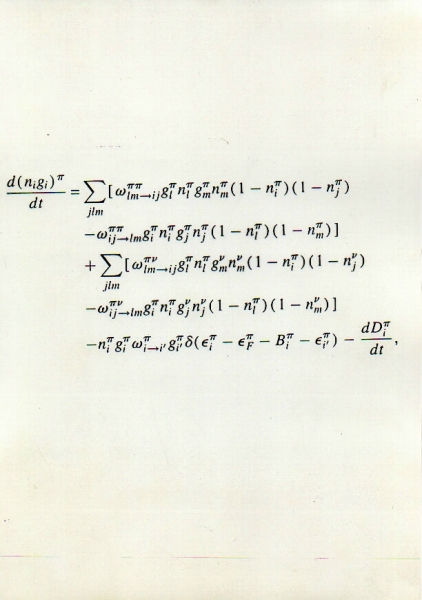 \frac{d(n_i g_i)^\pi}{dt} = \sum_{jlm} [ \omega^{\pi\pi}_{lm \to ij} g^\pi_l n^\pi_l g^\pi_m n^\pi_m (1 - n^\pi_i)(1 - n^\pi_j)
- \omega^{\pi\pi}_{ij \to lm} g^\pi_i n^\pi_i g^\pi_j n^\pi_j (1 - n^\pi_l)(1 - n^\pi_m) ]
+ \sum_{jlm} [ \omega^{\pi\nu}_{lm \to ij} g^\pi_l n^\pi_l g^\nu_m n^\nu_m (1 - n^\pi_i)(1 - n^\nu_j)
- \omega^{\pi\nu}_{ij \to lm} g^\pi_i n^\pi_i g^\nu_j n^\nu_j (1 - n^\pi_l)(1 - n^\nu_m) ]
- n^\pi_i g^\pi_i \omega^\pi_{i \to i'} g^\pi_{i'} \delta(\epsilon^\pi_i - \epsilon^\pi_F - B^\pi_i - \epsilon^\pi_{i'}) - \frac{dD^\pi_i}{dt},